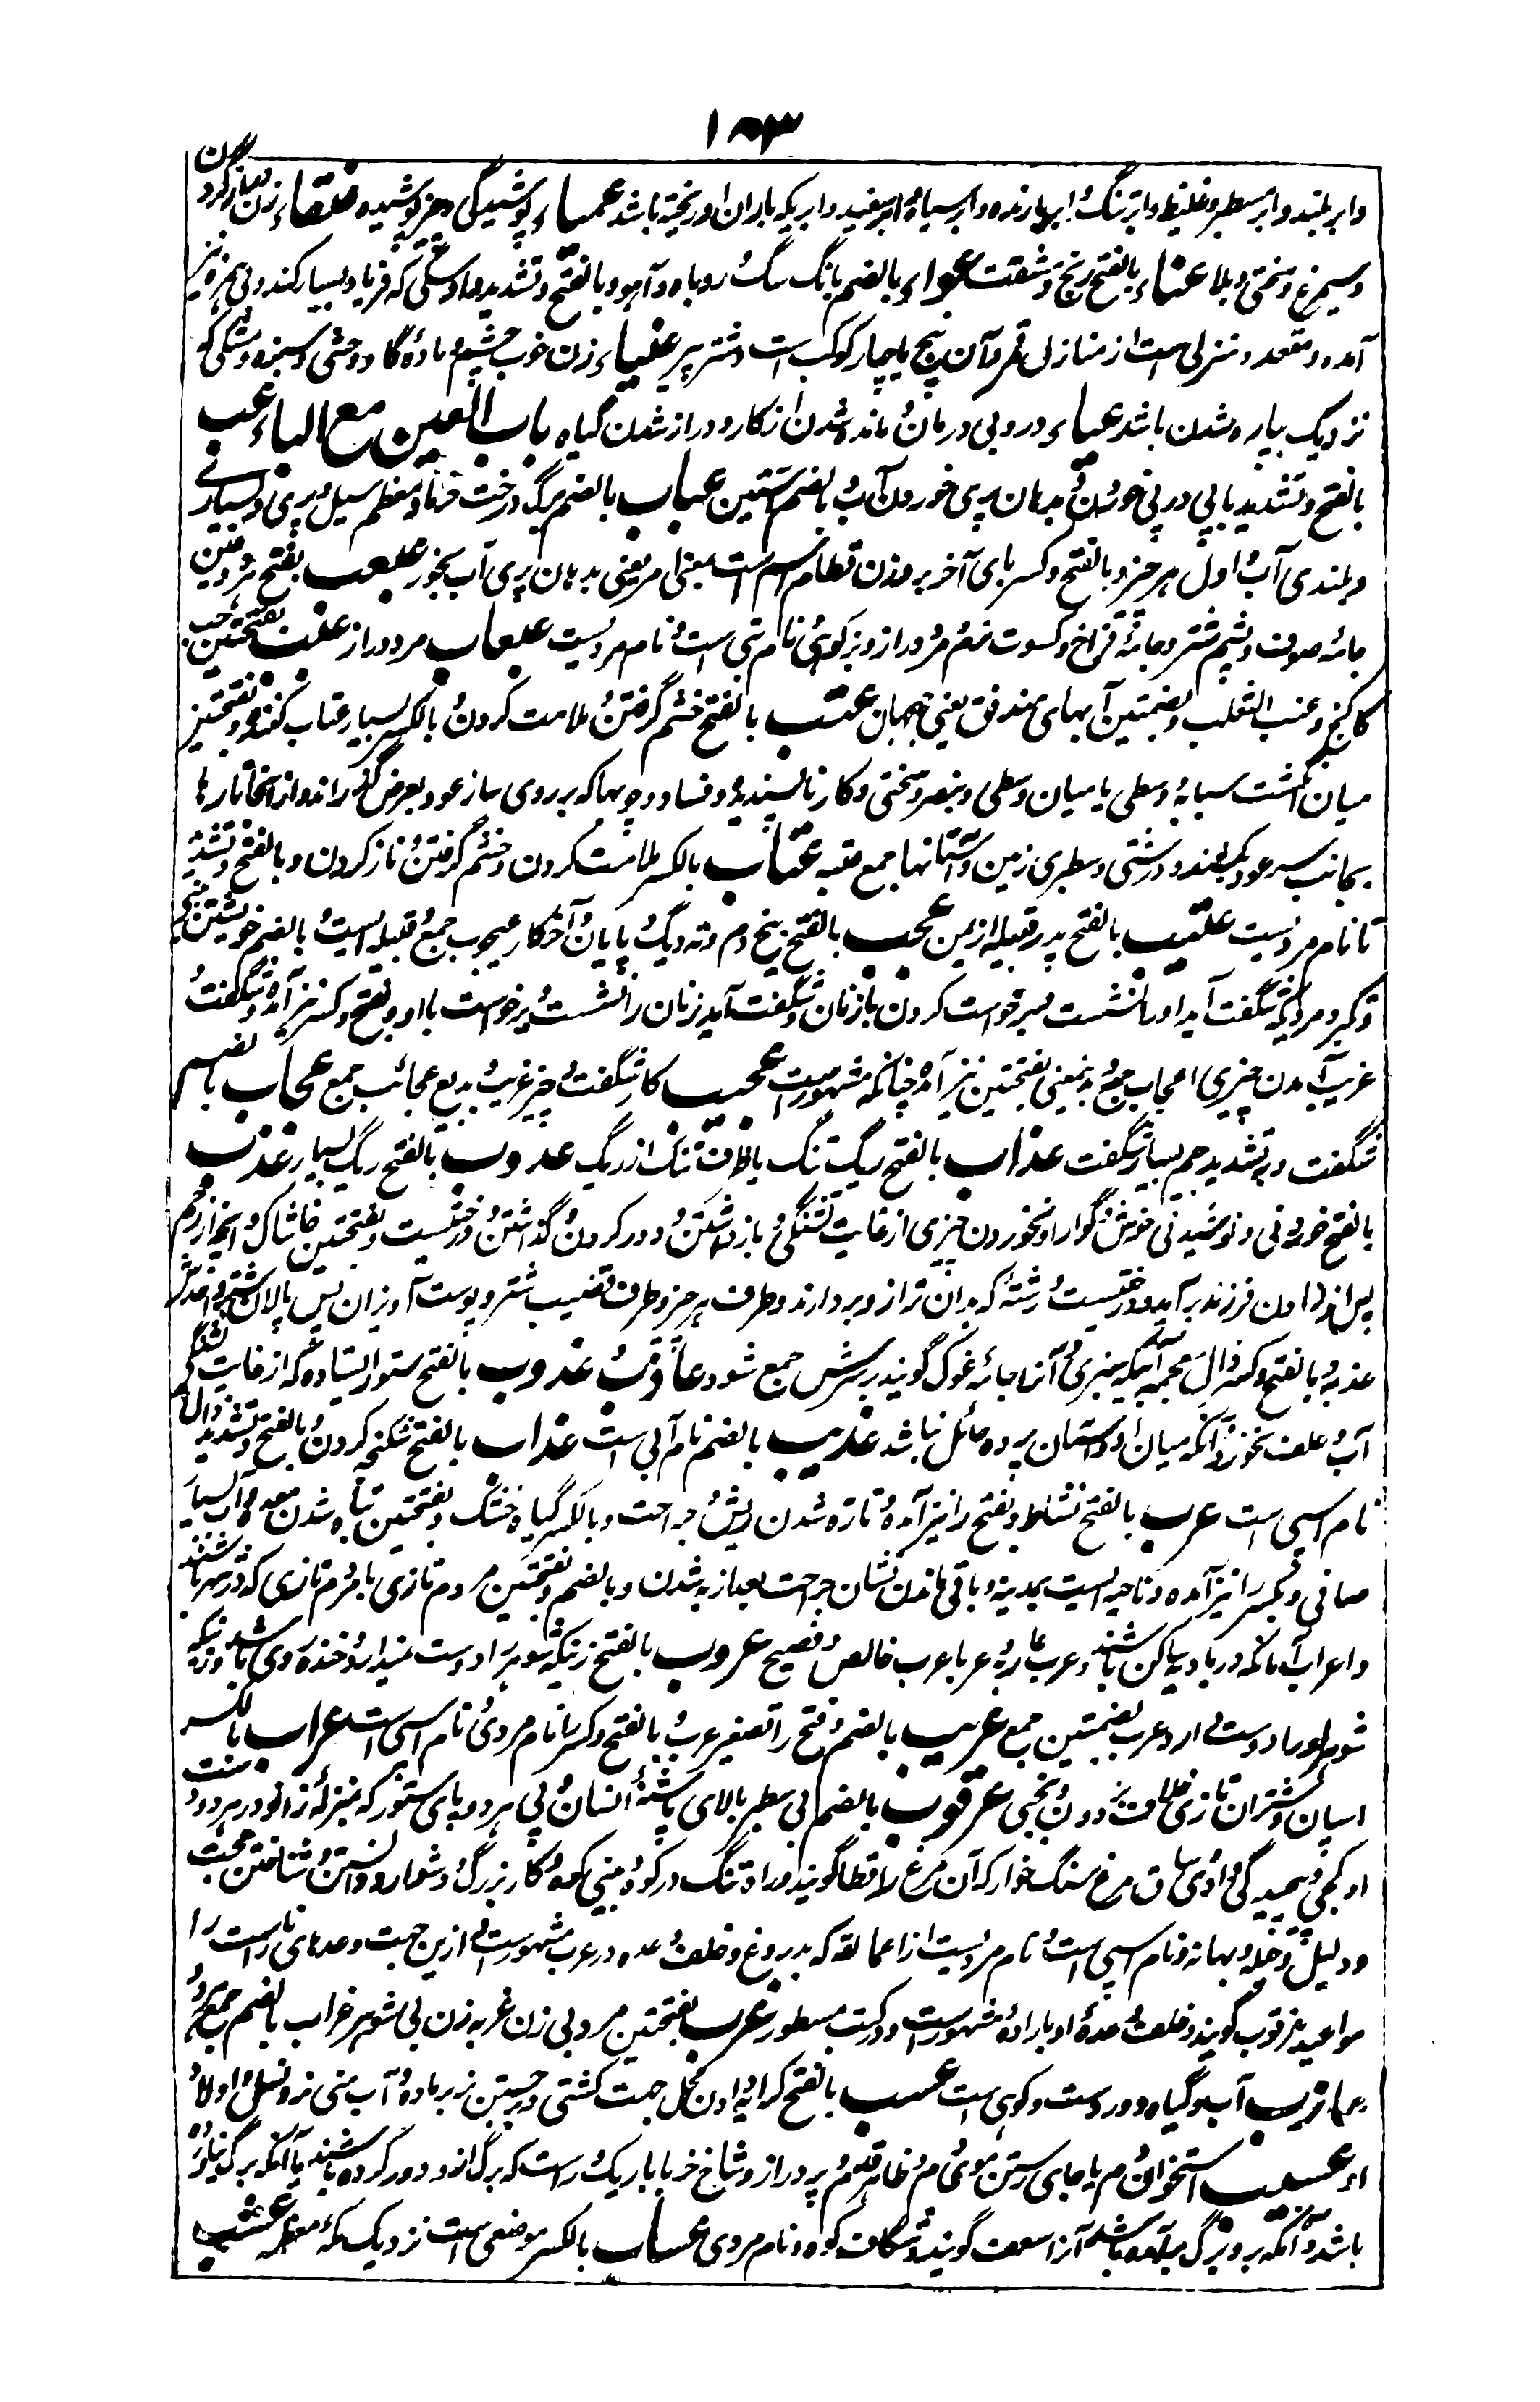 ۱۵۳
وابر بلند وابر سطبر و غلیظ وابر تنگ و ابر بارنده وابر سیاه و ابر سفید وابریکه باران او ریخته باشد عمیاء پوشیدگی و چیز پوشیده عنقاء زن دراز گردن
و سیمرغ و سختی و بلا عناء بالفتح رنج و مشقت عواء بالضم بانگ سگ و روباه و آهو و بالفتح و تشدید واو سگی که فریاد بسیار کند و بی همزه نیز
آمده و مقعد و منزلی است از منازل قمر و آن پنج یا چهار کوکب است و شتر پیر عیناء زن خوب چشم و ماده گاو وحشی و سبزه و مشکی که
نزدیک بپاره شدن باشد عیاء درد بی درمان و مانده شدن از کار و دراز شدن گیاه باب العین مع الباء عب
بالفتح و تشدید با پی در پی خوردن و بدهان پری خوردن آب و بالضم آستین عباب بالضم برگ درخت خرما و معظم سیل و پری و بسیاری
و بلندی آب و اول هر چیز و بالفتح و کسر بای آخر بر وزن قطام اسم است بمعنی امر یعنی بدهان پری آب بخور عبعب بفتح هر دو عین
جامه صوف و پشم شتر و جامه فراخ و کسوت نرم و مرد دراز و بز کوهی و نام بتی است و نام مردیست عبعاب مرد دراز عنب بفتحتین حب
کاکنج و عنب الثعلب و بضمتین آبهای مندفق یعنی جهان عتب بالفتح خشم گرفتن و ملامت کردن و بالکسر بسیار عتاب کننده و بفتحتین
میان انگشت سبابه و وسطی یا میان وسطی و بنصر و سختی و کار ناپسندیده و فساد و چوبها که بر روی ساز عود بعرض گذرانند و از آنجا تارها
بجانب سر عود کشند و درشتی و سطبری زمین و آستانها جمع عتبه عتاب بالکسر ملامت کردن و خشم گرفتن و ناز کردن و بالفتح و تشدید
تا نام مردیست عتیب بالفتح پدر قبیله از یمن عجب بالفتح بیخ دم و ته دیگ و پایان و آخر کار عجوب جمع و قبیله ایست و بالضم خویشتن بینی
و کبر و مردیکه شگفت آید او را نشست و برخواست کردن با زنان و شگفت آید زنان را نشست و برخواست با او و بفتح و کسر نیز آمده و شگفت و
غریب آمدن چیزی اعجاب جمع و بدینمعنی بفتحتین نیز آمده چنانکه مشهور است عجیب کار شگفت و چیز غریب و بدیع عجائب جمع عجاب بالضم
شگفت و به تشدید جیم بسیار شگفت عداب بالفتح ریگ تنگ یا طرف تنک از ریگ عدوب بالفتح ریگ بسیار عذب
بالفتح خوردنی و نوشیدنی خوش و گوارا و نخوردن چیزی از غایت تشنگی و باز داشتن و دور کردن و گذاشتن و درختیست و بفتحتین خاشاک و آنچه از رحم
پس از زادن فرزند بر آید و درختیست و رشتهٔ که بدان ترازو بردارند و طرف هر چیز و طرف قضیب شتر و پوست آویزان پس پالان شتر
عذبه و بالفتح و کسر ذال معجمه آبیکه سبزی که آنرا جامه غوک گویند بر سرش جمع شود عاذب و عذوب بالفتح ستور ایستاده که از غایت تشنگی
آب و علف نخورد و آنکه میان او و آسمان پرده حائل نباشد عذیب بالضم نام آبی است عذاب بالفتح شکنجه کردن و بالفتح و تشدید ذال
نام اسپی است عرب بالفتح نشاط و بفتح را نیز آمده و تازه شدن ریش و جراحت و بالکسر گیاه خشک و بفتحتین تباه شدن معده و آب بسیار
صافی و بکسر را نیز آمده و ناحیه ایست بمدینه و باقی ماندن نشان جراحت بعد از به شدن و بالضم و بفتحتین مردم تازی یا مردم تازی که در شهر باشند
و اعراب آنانکه در بادیه ساکن باشند و عرب عاربه و عرباء عرب خالص و فصیح عروب بالفتح زنیکه شوهر او را دوست میدارد و خنده روی باشد و زنیکه
شوهر او را دوست دارد و عرب بضمتین جمع عریب بالضم و فتح را تصغیر عرب و بالفتح و کسر را نام مردی و نام اسپی است عراب بالکسر
اسپان و شتران تازی خلاف بردون و بختی عرقوب بالضم پی سطبر بالای پاشنهٔ انسان و پی هر دو پای ستور که بمنزلهٔ زانو در هر دو دست
او و کجی و پیچیدگی وادی و ساق مرغ سنگ خوار که آن مرغ را قطا گویند و راه تنگ در کوه و بینی کوه و کار بزرگ و دشوار و دانستن و شناختن حجت
و دلیل و حیله و بهانه و نام اسپی است و نام مردیست از عمالقه که بدروغ و خلف وعده در عرب مشهور است از این جهت وعده‌های ناراست را
مواعید عرقوب گویند و خلف وعده او بارادهٔ مشهور است و در کتب مسطور عزب بفتحتین مرد بی زن عزبه زن بی شوهر عزاب بالضم جمع هر دو
عازب آب و گیاه دور دست و کوهی است عسب بالفتح کرایه دادن فحل جهت کشتی و جستن نر بر ماده و آب منی نر و نسل و اولاد
او عسیب استخوان دم یا جای رستن موی دم و ظاهر قدم و پر دراز و شاخ خرما باریک و راست که برگ از و دور کرده باشند یا آنکه برگ نیاورده
باشد و آنکه برو برگ برآمده باشد آنرا سعف گویند و شگاف کوه و نام مردی عساب بالکسر موضعی است نزدیک مکه معظمه عشب